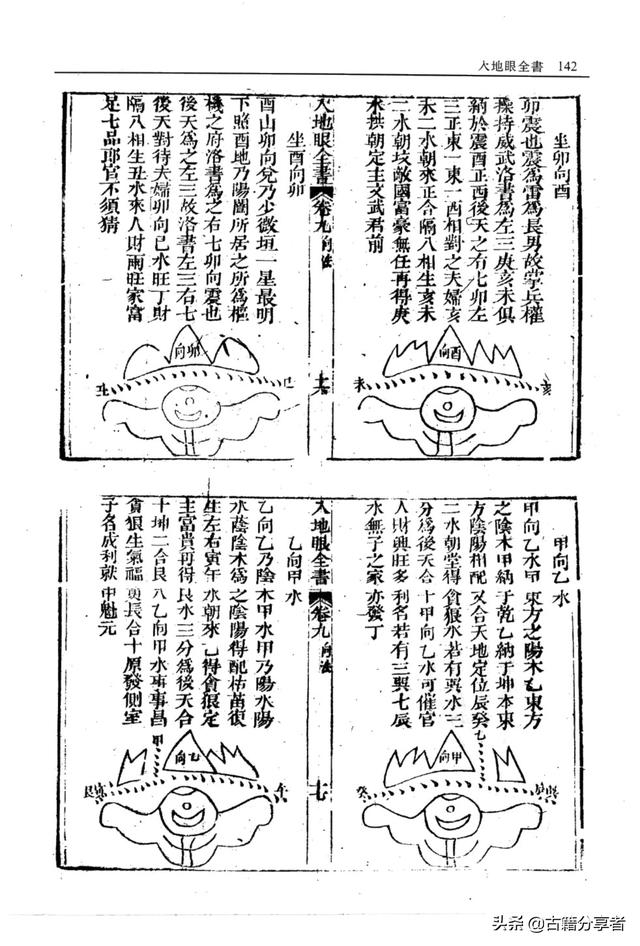 入地眼全書 142
坐卯向酉
卯震也震為雷為長男故掌兵權
操持威武洛書為左三庚亥未俱
納於震酉正西後天之右七卯左
三正東一東一酉相對之夫婦亥
未二水朝來正合隔八相生亥未
二水朝坟敵國富豪無任再得庚
水拱朝定主文武君前
酉向
亥
未
入地眼全書
卷九
向法
十六
坐酉向卯
酉山卯向兌乃少微垣一星最明
下照酉地乃陽闔所居之所為樞
機之府洛書為之右七卯向震也
後天為之左三故洛書左三右七
後天對待夫婦卯向巳水旺丁財
隔八相生丑水來人財兩旺家富
足七品郎官不須猜
卯向
巳
丑
甲向乙水
甲向乙水甲東方之陽木乙東方
之陰木甲納于乾乙納于坤本東
方陰陽相配又合天地定位辰癸
二水朝堂得貪狼水若有巽水三
分為後天合十甲向乙水可催官
人財興旺多利名若有三巽七辰
水無子之家亦發丁
乙
甲向
癸
入地眼全書
卷九
向法
十七
乙向甲水
乙向乙乃陰木甲水甲乃陽水陽
水蔭陰木為之陰陽得配枯苗復
生左右寅午水朝來乙得貪狼定
主富貴再得艮水三分為後天合
十坤二合艮八乙向甲水事事昌
貪狼生氣福奭長合十原發側室
子名成利就中魁元
甲
乙向
午
艮寅
头条@古籍分享者